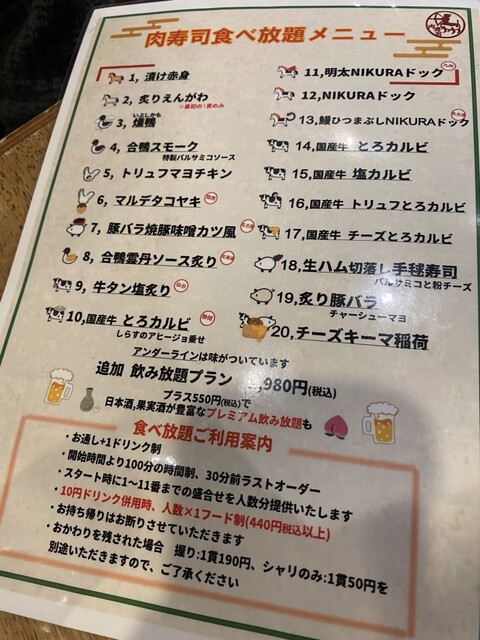 肉寿司食べ放題メニュー
1, 漬け赤身
2, 炙りえんがわ
※最初の1貫のみ
3, 燻鴨
いぶしかも
4, 合鴨スモーク
特製バルサミコソース
5, トリュフマヨチキン
6, マルデタコヤキ
7, 豚バラ焼豚味噌カツ風
8, 合鴨雲丹ソース炙り
9, 牛タン塩炙り
仙台
10,国産牛 とろカルビ
静岡
しらすのアヒージョ乗せ
11,明太NIKURAドック
九州
12,NIKURAドック
13,鰻ひつまぶしNIKURAドック
14,国産牛 とろカルビ
15,国産牛 塩カルビ
16,国産牛 トリュフとろカルビ
17,国産牛 チーズとろカルビ
18,生ハム切落し手毬寿司
バルサミコと粉チーズ
19,炙り豚バラ
チャーシューマヨ
20,チーズキーマ稲荷
アンダーラインは味がついています
追加 飲み放題プラン ,980円(税込)
プラス550円(税込)で
日本酒,果実酒が豊富なプレミアム飲み放題も
食べ放題ご利用案内
・お通し+1ドリンク制
・開始時間より100分の時間制、30分前ラストオーダー
・スタート時に1〜11番までの盛合せを人数分提供いたします
・10円ドリンク併用時、人数×1フード制(440円税込以上)
・お持ち帰りはお断りさせていただきます
・おかわりを残された場合 握り:1貫190円、シャリのみ:1貫50円を
別途いただきますので、ご了承ください